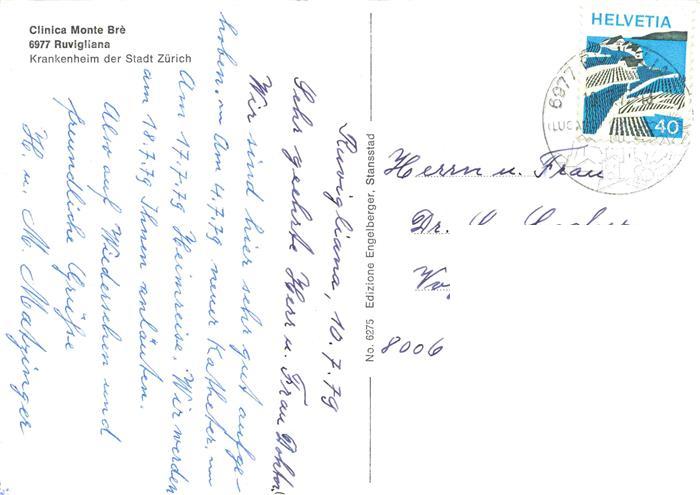 Clinica Monte Brè
6977 Ruvigliana
Krankenheim der Stadt Zürich
Ruvigliana, 10.7.79
Sehr geehrte Herr u. Frau Doktor!
Wir sind hier sehr gut aufge-
hoben. Am 4.7.79 neuer Katheter.
Am 17.7.79 Heimreise. Wir werden
am 18.7.79 Ihnen anläuten.
Also auf Wiedersehen und
freundliche Grüße
H. u. M. Matzinger
No. 6275 Edizione Engelberger, Stansstad
HELVETIA
40
6977
Herrn u. Frau
Dr.
8006